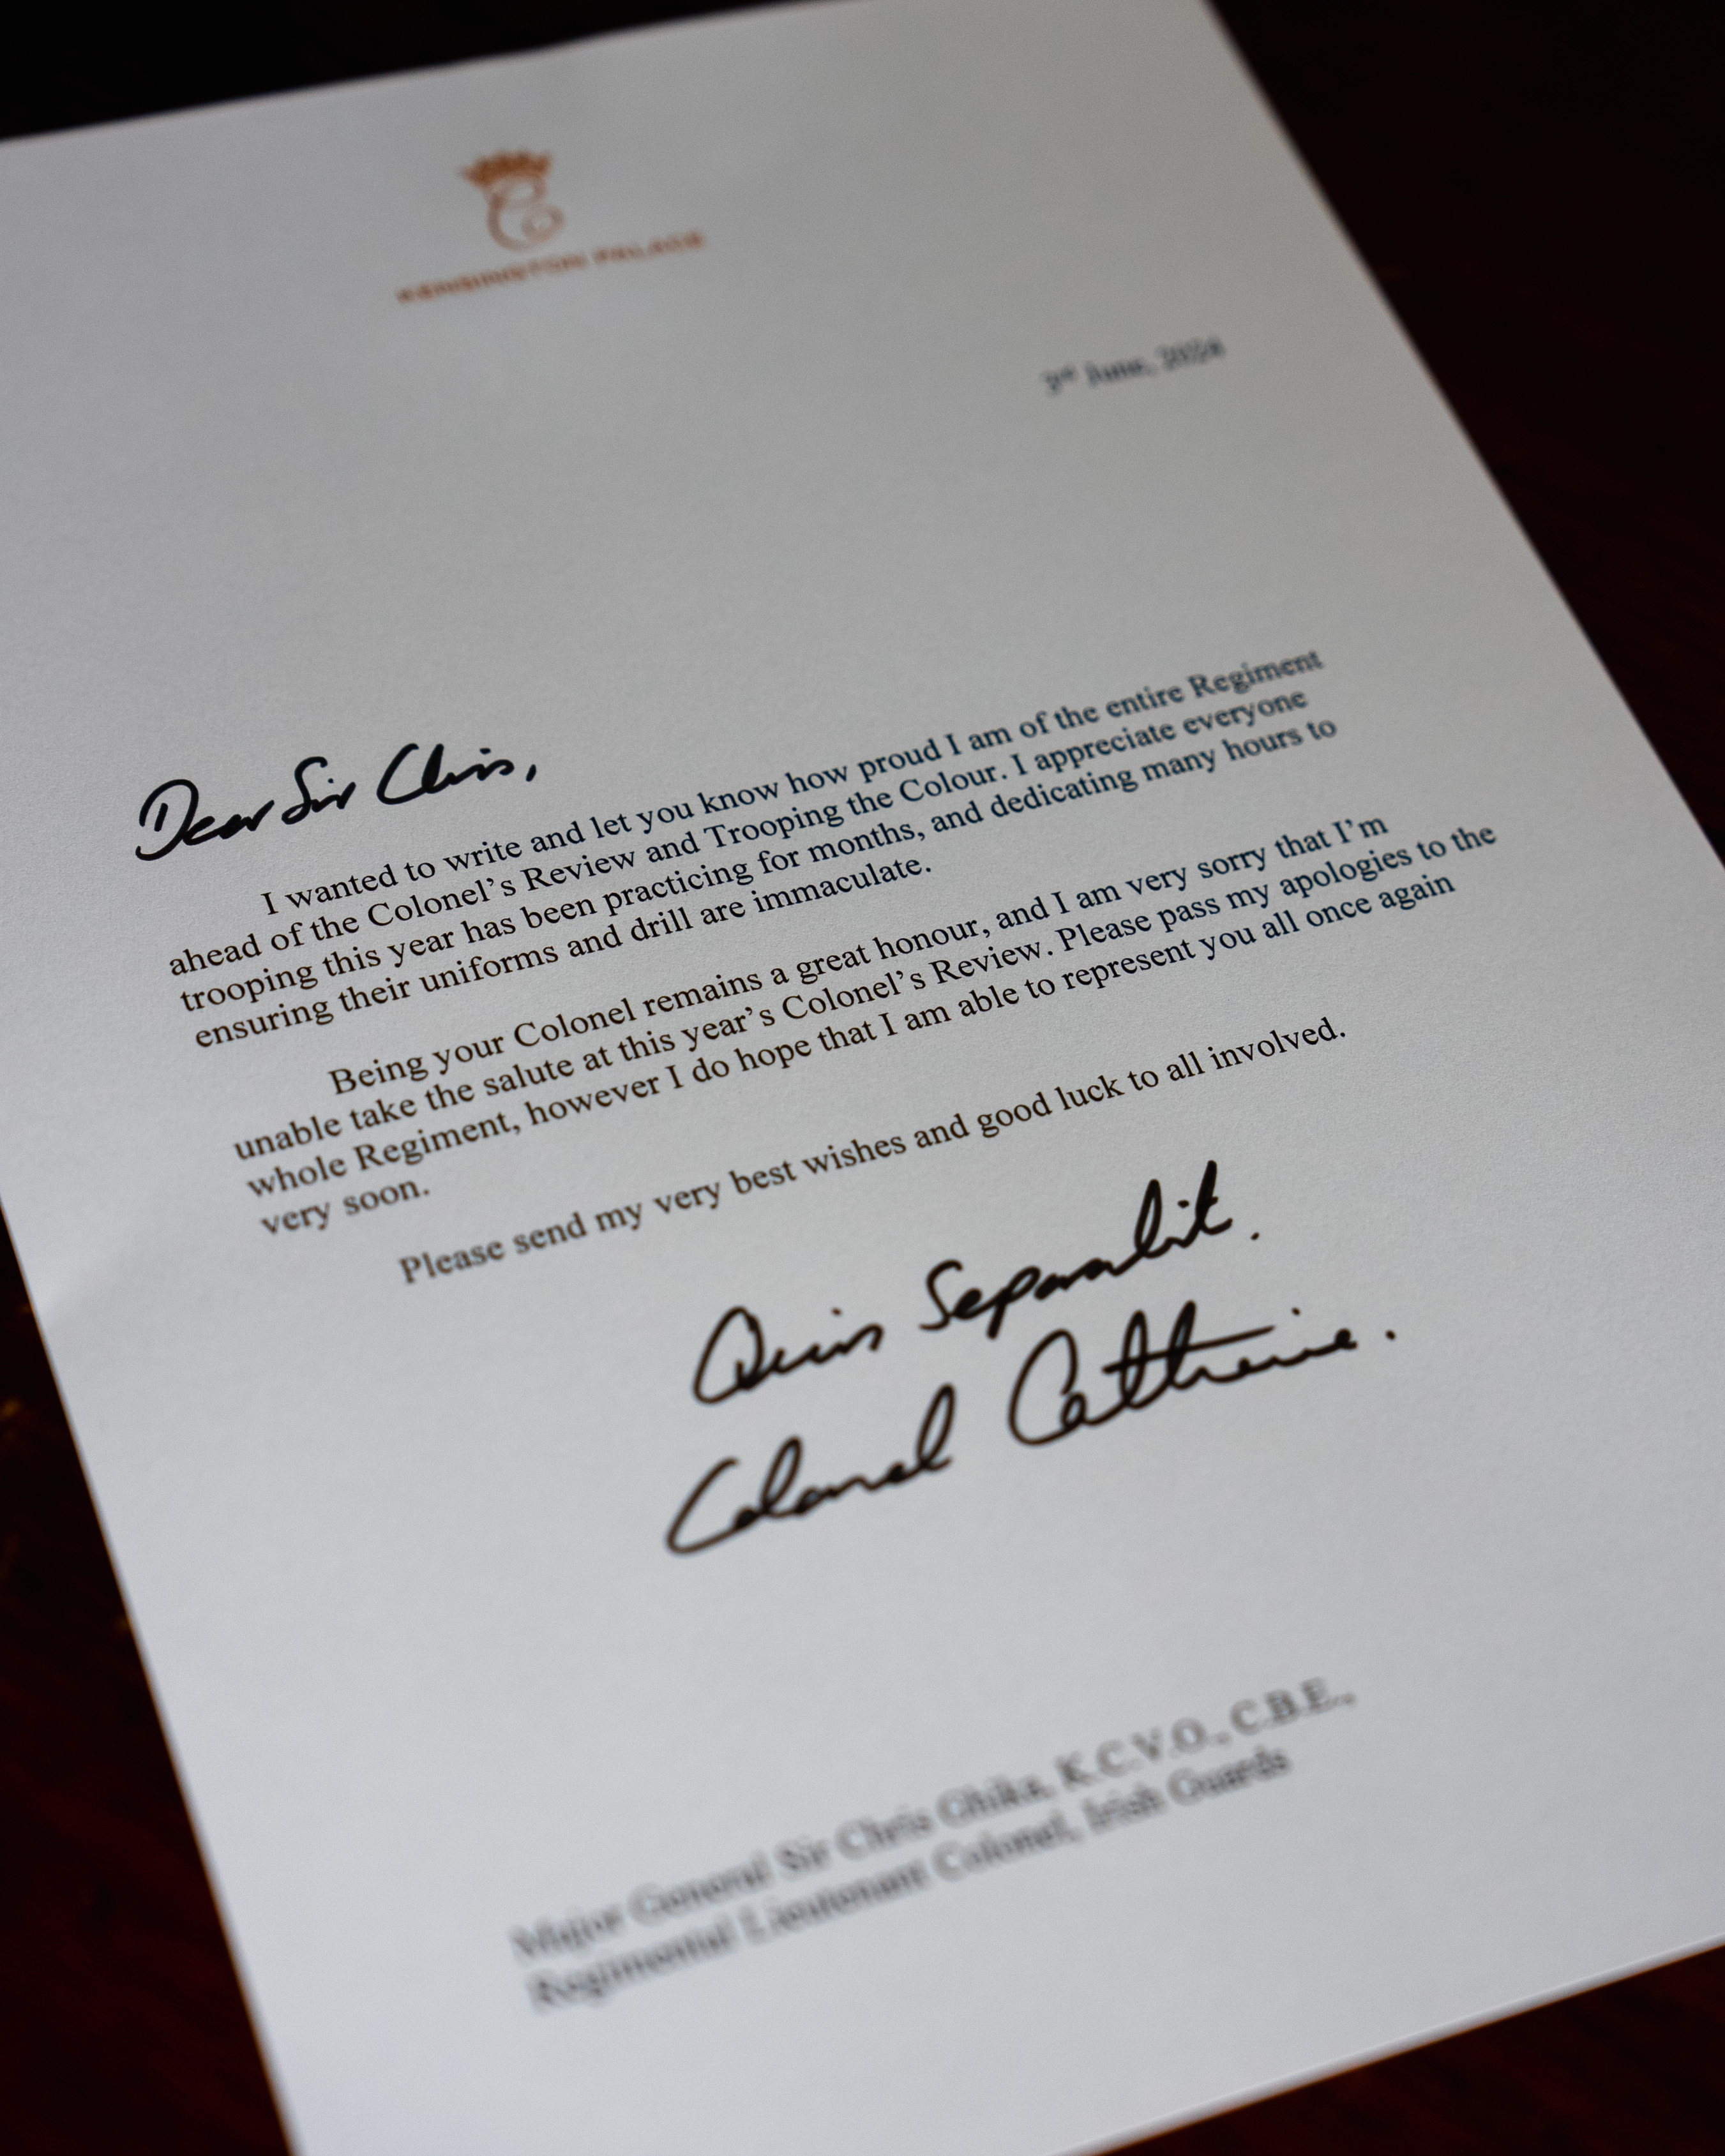 KENSINGTON PALACE
3rd June, 2024
Dear Sir Chris,
I wanted to write and let you know how proud I am of the entire Regiment
ahead of the Colonel’s Review and Trooping the Colour. I appreciate everyone
trooping this year has been practicing for months, and dedicating many hours to
ensuring their uniforms and drill are immaculate.
Being your Colonel remains a great honour, and I am very sorry that I’m
unable take the salute at this year’s Colonel’s Review. Please pass my apologies to the
whole Regiment, however I do hope that I am able to represent you all once again
very soon.
Please send my very best wishes and good luck to all involved.
Quis Separabit.
Colonel Catherine.
Major General Sir Chris Ghika, K.C.V.O., C.B.E.,
Regimental Lieutenant Colonel, Irish Guards